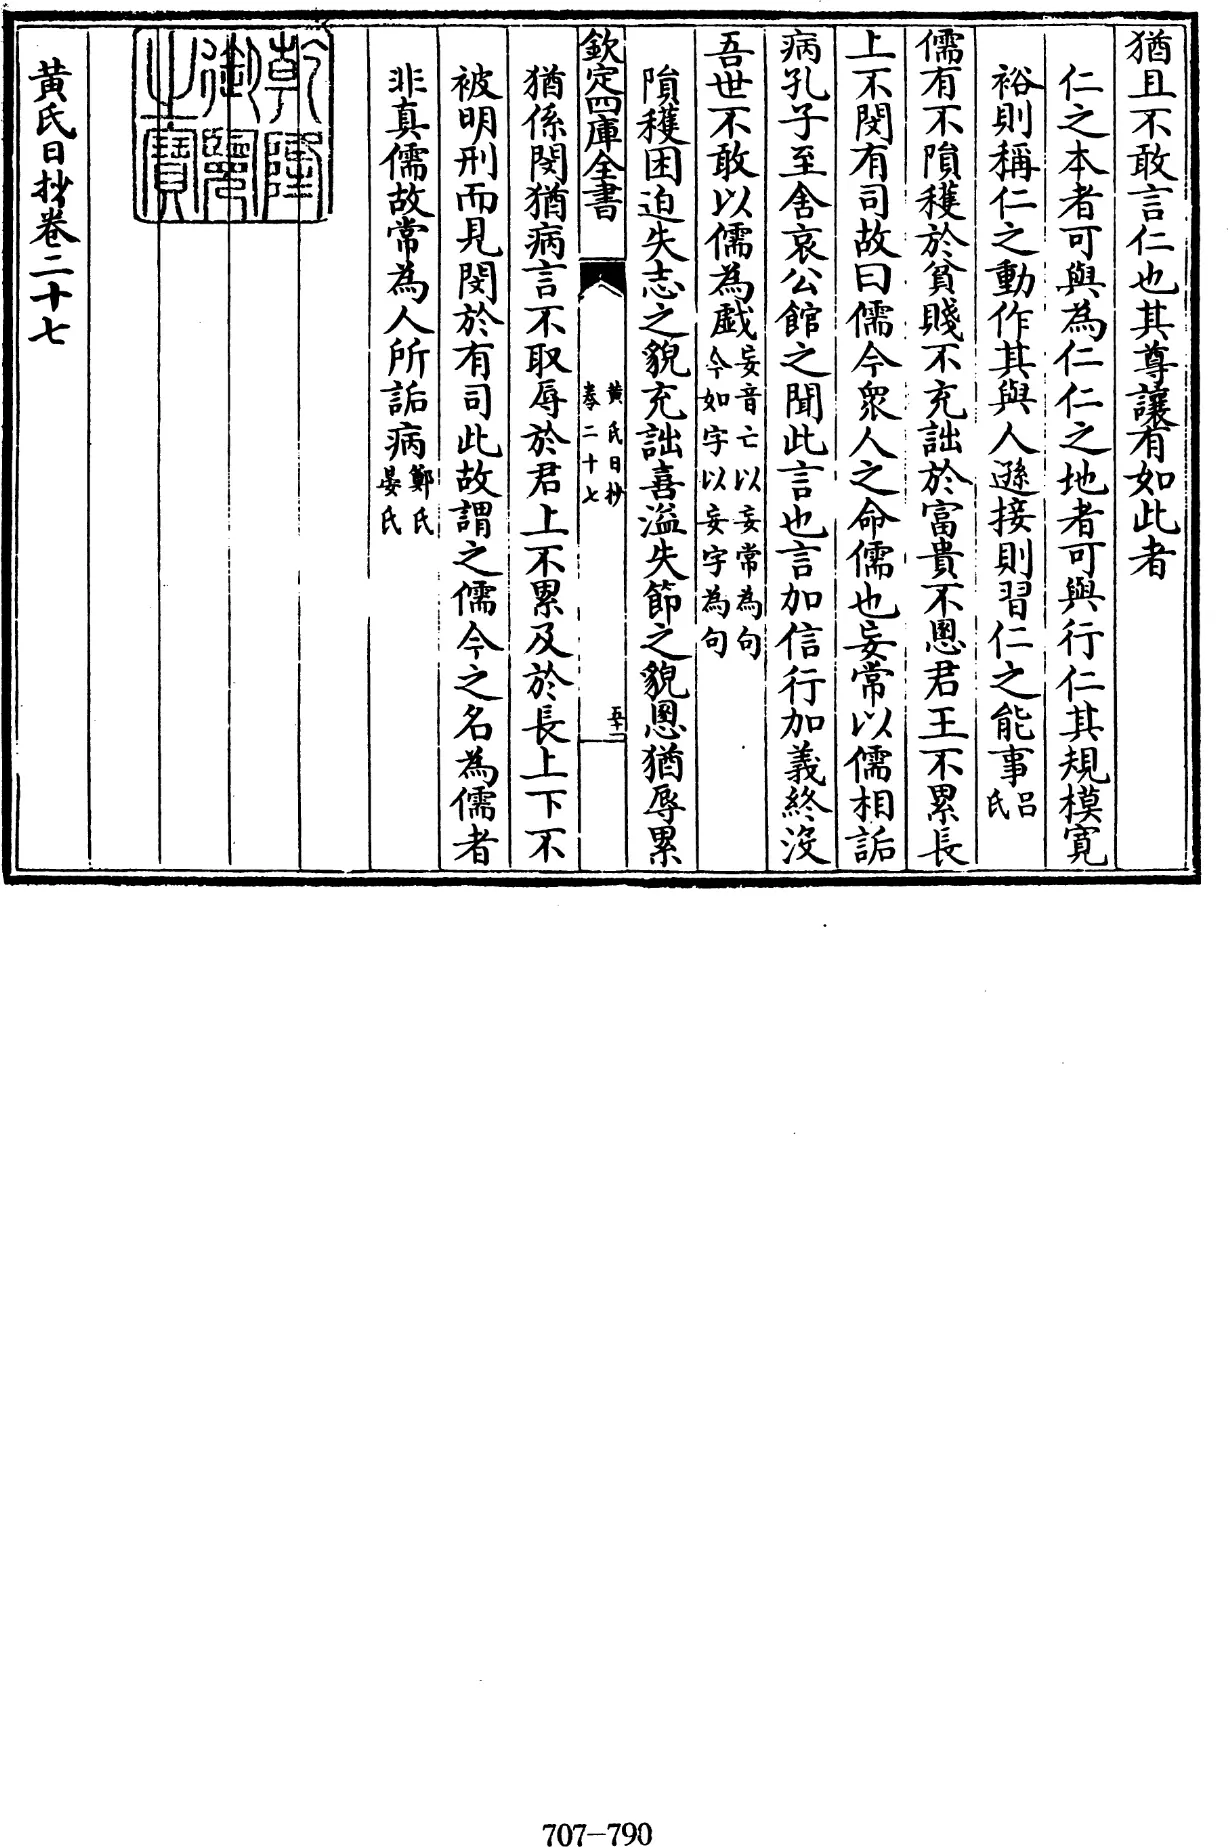 猶且不敢言仁也其尊讓有如此者
仁之本者可與為仁仁之地者可與行仁其規模寛
裕則稱仁之動作其與人遜接則習仁之能事呂氏
儒有不隕穫於貧賤不充詘於富貴不慁君王不累長
上不閔有司故曰儒今衆人之命儒也妄常以儒相詬
病孔子至舍哀公館之聞此言也言加信行加義終沒
吾世不敢以儒為戲妄音亡以妄常為句今如字以妄字為句
隕穫困迫失志之貌充詘喜溢失節之貌慁猶辱累
欽定四庫全書
黄氏日抄
卷二十七
五十二
猶係閔猶病言不取辱於君上不累及於長上下不
被明刑而見閔於有司此故謂之儒今之名為儒者
非真儒故常為人所詬病鄭氏晏氏
乾隆御覽之寶
黄氏日抄卷二十七
707-790